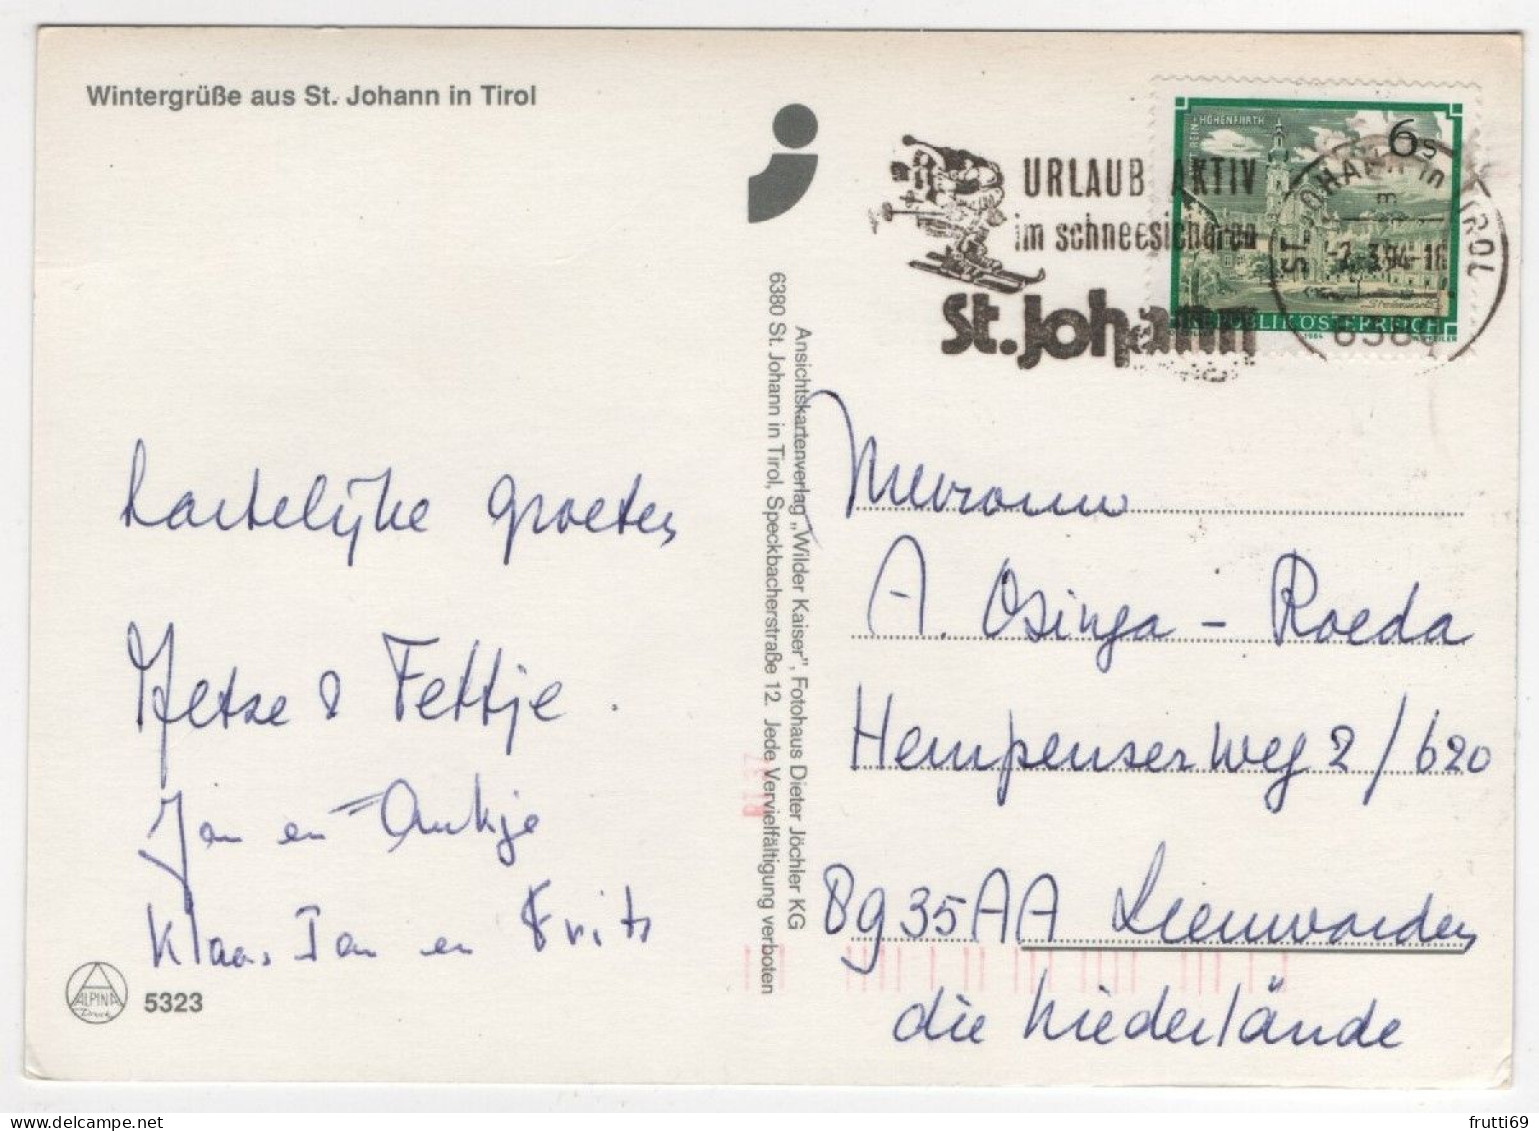 Wintergrüße aus St. Johann in Tirol
URLAUB AKTIV
im schneesicheren
St. Johann
6s
REIN-HOHENFURTH
REPUBLIK ÖSTERREICH
ST. JOHANN in TIROL
-2.-3.94-16
6380
Hartelijke groeten
Hetse & Fettje.
Jan en Aukje
Klaas Jan en Frits
Mevrouw
A. Osinga - Roeda
Hempenserweg 2/620
8935AA Leeuwarden
die Niederlände
Ansichtskartenverlag „Wilder Kaiser", Fotohaus Dieter Jöchler KG
6380 St. Johann in Tirol, Speckbacherstraße 12. Jede Vervielfältigung verboten
ALPINA
Druck
5323
frutti69